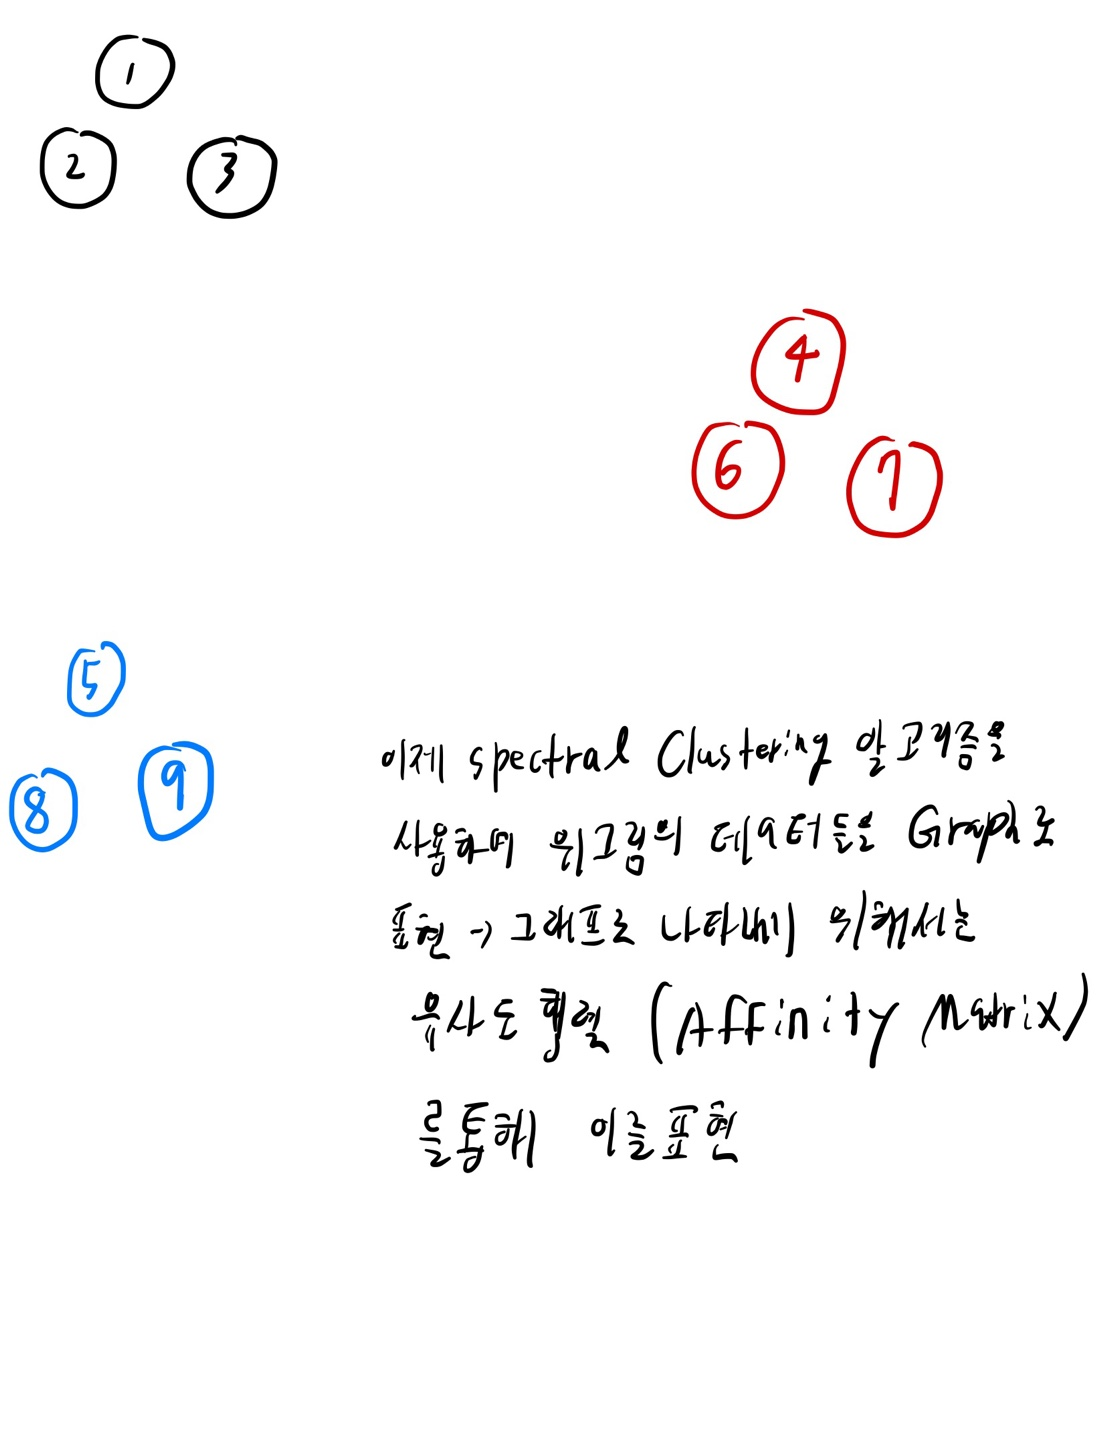 1
2 3
4
6 7
5
8 9
이제 spectral Clustering 알고리즘을
사용하여 위그림의 데이터들을 Graph로
표현 → 그래프로 나타내기 위해서는
유사도 행렬 (Affinity Matrix)
를통해 이를표현